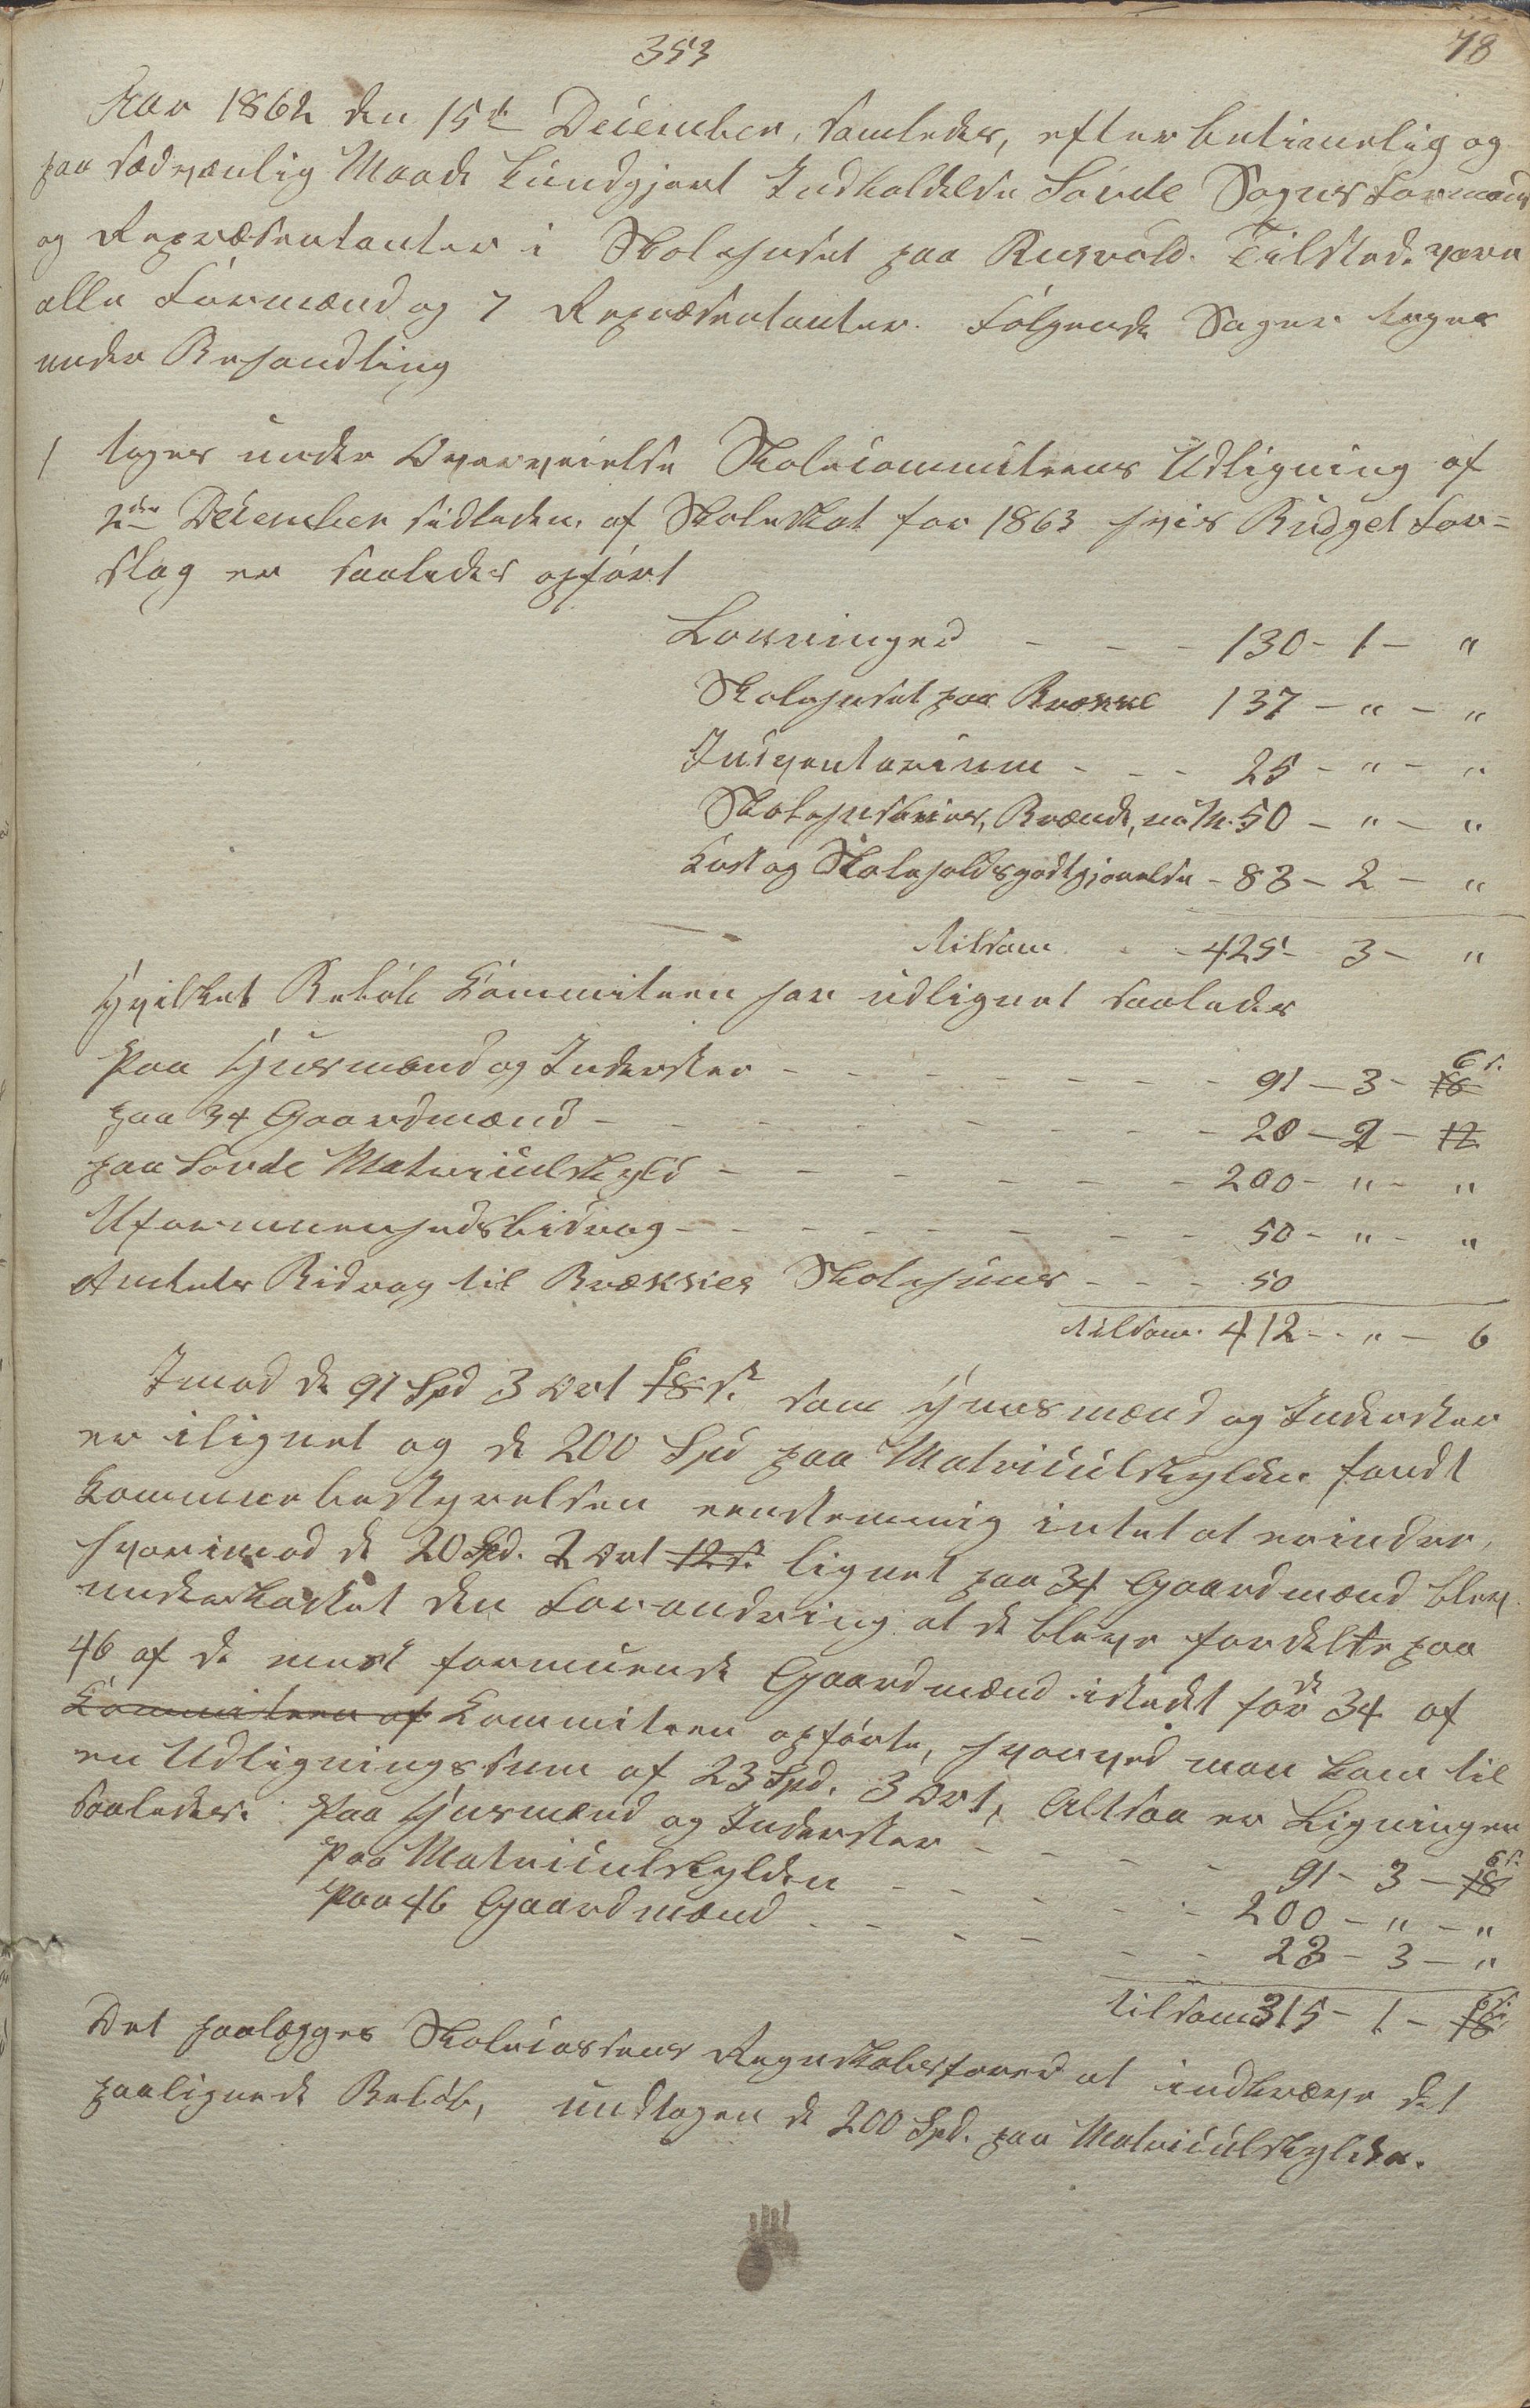 353
78
Aar 1862 den 15de December, samledes, efter betimelig og
paa sædvanlig Maade kundgjort Indkaldelse Sovde Sogns Formænd
og Repræsentanter i Skolehuset paa Rusvold. Tilstede vare
alle Formænd og 7 Repræsentanter. Følgende Sager toges
under Behandling
1 toges under Overveielse Skolecommiteens Udligning af
2den December sidstleden af Skoleskat for 1863 hvis Budget For=
slag er saaledes opført
Lønninger - - - 130 - 1 - "
Skolehuset paa Brække 137 - " - "
Indventarium - - - 25 - " - "
Skolehusleies, Brænde, m: m. 50 - " - "
Kost og Skoleholdsgodtgjørelse - 83 - 2 - "
tilsam - - 425 - 3 - "
Hvilket Beløb Kommiteen har udlignet saaledes
Paa Husmænd og Inderster - - - - - - - 91 - 3 - 18 6 s.
paa 34 Gaardmænd - - - - - - - - 20 - 2 - 12
paa Sovde Matriculskyld - - - - - - 200 - " - "
Uformuenhedsbidrag - - - - - - - 50 - " - "
Amtets Bidrag til Brækkes Skolehuus - - - 50
tilsam. 412 - " - 6
Imod de 91 Spd 3 Ort 18 6 s. som Huusmænd og Inderster
er ilignet og de 200 Spd paa Matriculskylden fandt
Kommunebestyrelsen eenstemmig intet at erindre,
hvorimod de 20 Spd. 2 Ort 12 s. lignet paa 34 Gaardmænd blev
underkastet den Forandring at de bleve fordelte paa
46 af de meest formuende Gaardmænd istedet for de 34 af
Kommiteen af Kommiteen opførte, hvorved man kom til
en Udligningssum af 23 Spd. 3 Ort, Altsaa er Ligningen
saaledes. Paa Husmænd og Inderster - - - - - 91 - 3 - 18 6 s.
Paa Matriculskylden - - - - - - 200 - " - "
Paa 46 Gaardmænd - - - - - - 23 - 3 - "
tilsam 315 - 1 - 18 6 s.
Det paalægges Skolecassens Regnskabsfører at indkræve det
paalignede Beløb, undtagen de 200 Spd. paa Matriculskylden.